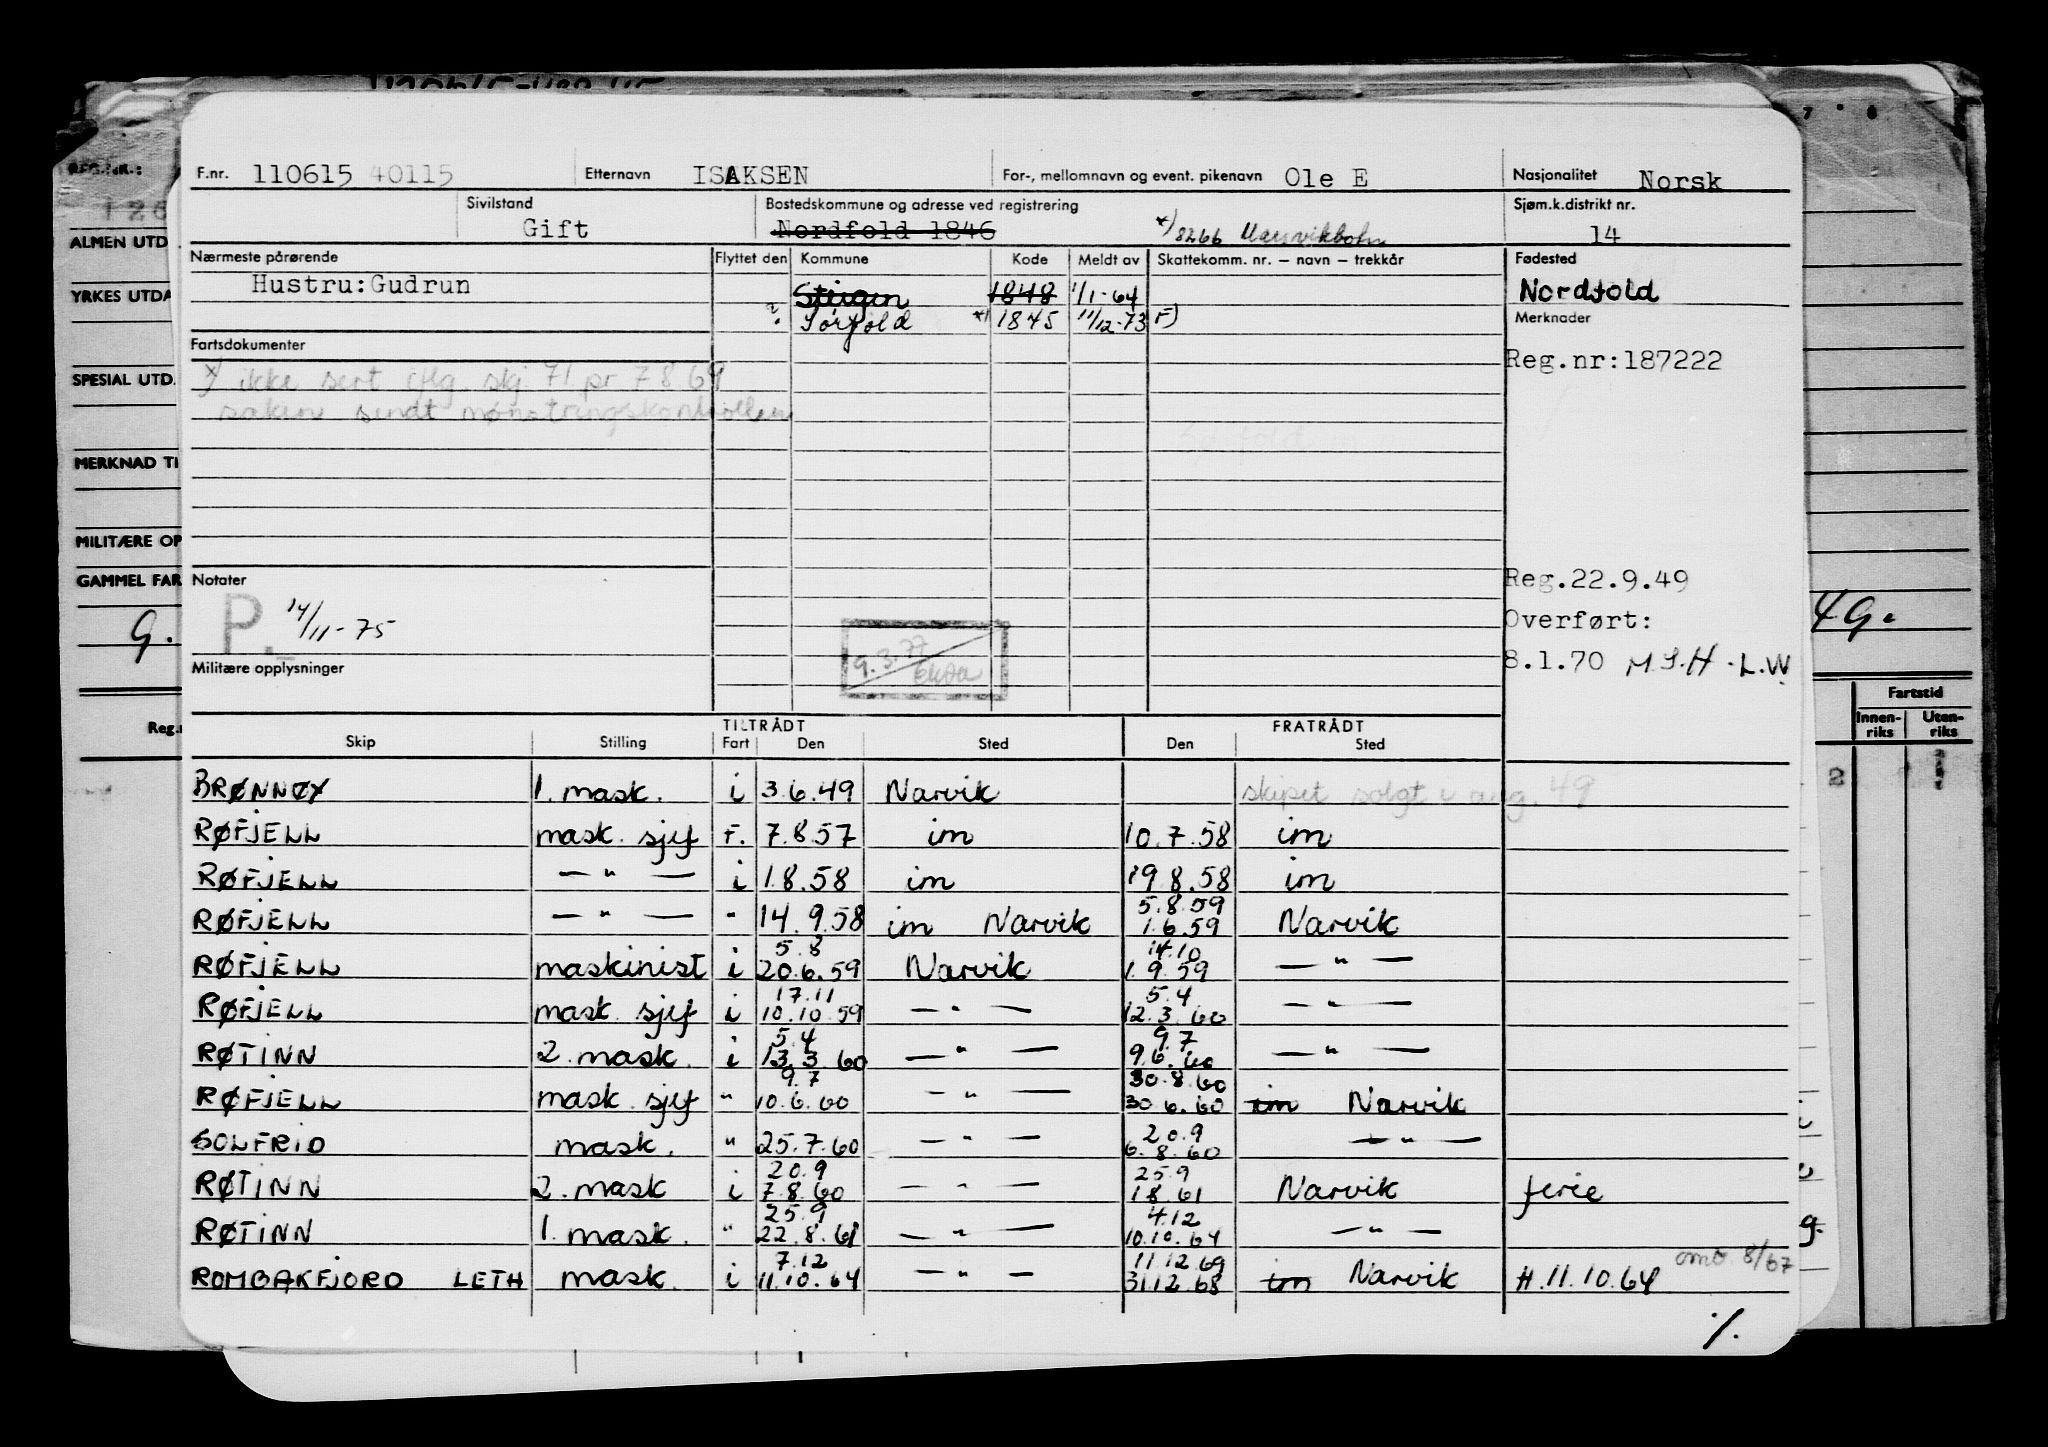 F.nr. 110615 40115 Etternavn ISAKSEN For-, mellomnavn og event. pikenavn Ole E Nasjonalitet Norsk
Sivilstand Gift Bostedskommune og adresse ved registrering Nordfold 1846 x) 8266 Sjøm.k.distrikt nr. 14
Nærmeste pårørende Flyttet den Kommune Kode Meldt av Skattekomm. nr. – navn – trekkår Fødested
Hustru:Gudrun Steigen 1848 1/1-64 Nordfold
? Sørfold x) 1845 11/12-73 F) Merknader
Fartsdokumenter Reg.nr:187222
x) ikke sert iflg. skj 71 pr 7 8 69
saken sendt mønstringskontrollen
Notater Reg.22.9.49
P. 14/11-75 Overført:
9.3.77 8.1.70 M S.H-L.W
Militære opplysninger
TILTRÅDT FRATRÅDT
Skip Stilling Fart Den Sted Den Sted
BRØNNØY 1. mask. i 3.6.49 Narvik skipet solgt i aug. 49
RØFJELL mask. sjef F. 7.8.57 im 10.7.58 im
RØFJELL — " — i 1.8.58 im 19.8.58 im
5.8.59
RØFJELL — " — " 14.9.58 im Narvik 1.6.59 Narvik
5.8 14.10
RØFJELL maskinist i 20.6.59 Narvik 1.9.59 — " —
17.11 5.4
RØFJELL mask. sjef i 10.10.59 — " — 12.3.60 — " —
5.4 9.7
RØTINN 2. mask. i 13.3.60 — " — 9.6.60 — " —
9.7 30.8.60
RØFJELL mask. sjef " 10.6.60 — " — 30.6.60 im Narvik
20.9
SOLFRID mask. " 25.7.60 — " — 6.8.60 — " —
20.9 25.9
RØTINN 2. mask i 7.8.60 — " — 1.8.61 Narvik ferie
25.9 4.12
RØTINN 1. mask. " 22.8.61 — " — 10.10.64 — " —
7.12 11.12.69 omb 8/67
ROMBAKFJORD LETH mask. i 11.10.64 — " — 31.12.68 im Narvik H.11.10.64
./.
REG.NR.:
ALMEN UTD
YRKES UTDA
SPESIAL UTD.
MERKNAD TI
MILITÆRE OP
GAMMEL FAR
9.
49.
Reg.n
Fartstid
Innen-riks Uten-riks
2
7 8